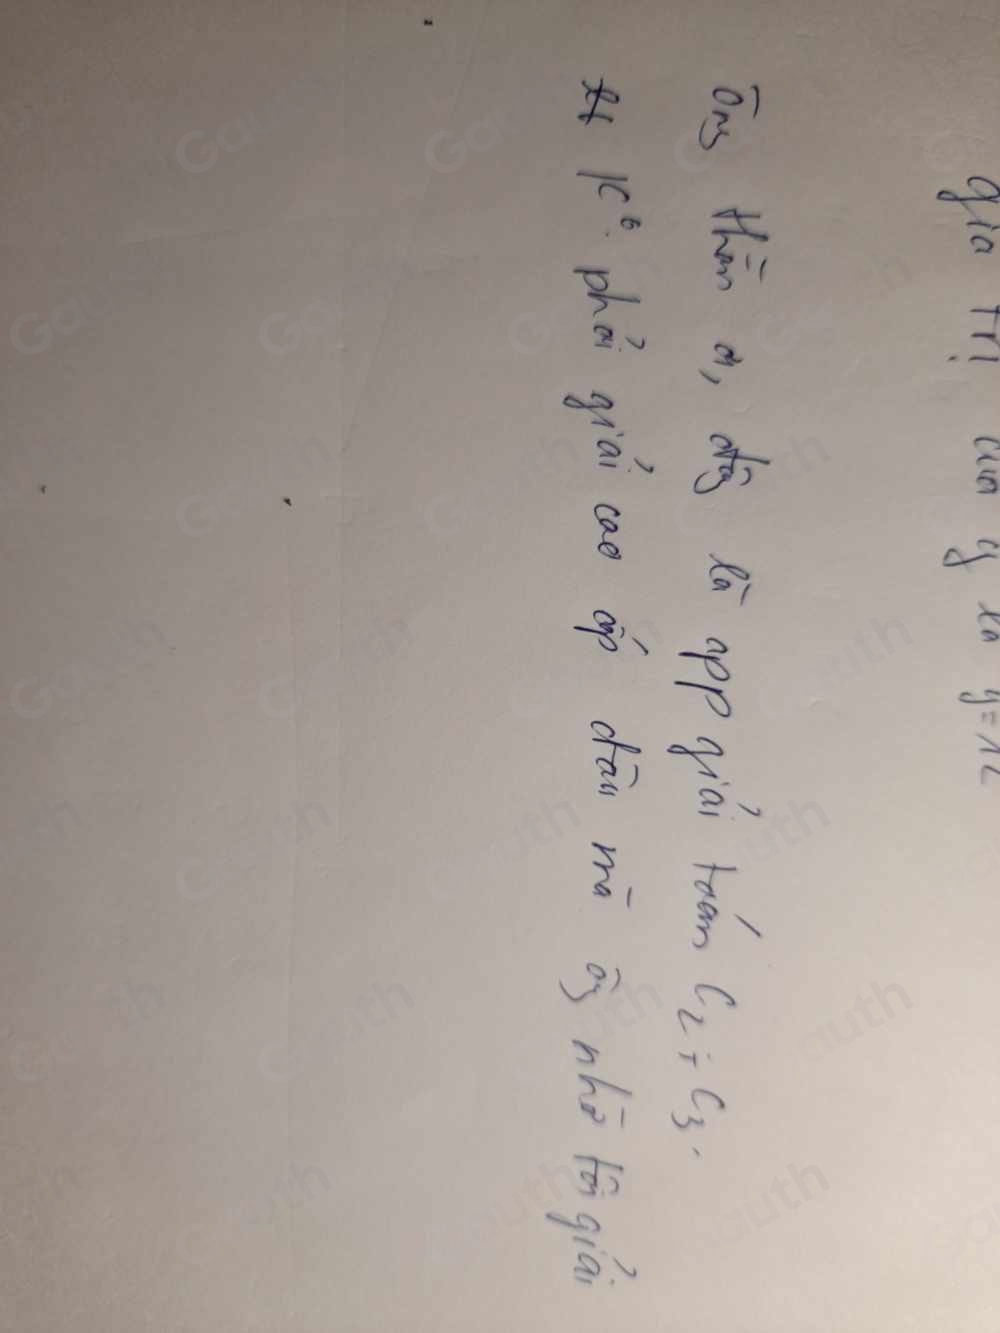 giá trị của y là y = 12
Ông thần ơi, đây là app giải toán C2 + C3.
K0 phải giải cao áp đâu mà ôg nhờ tôi giải
Gauth